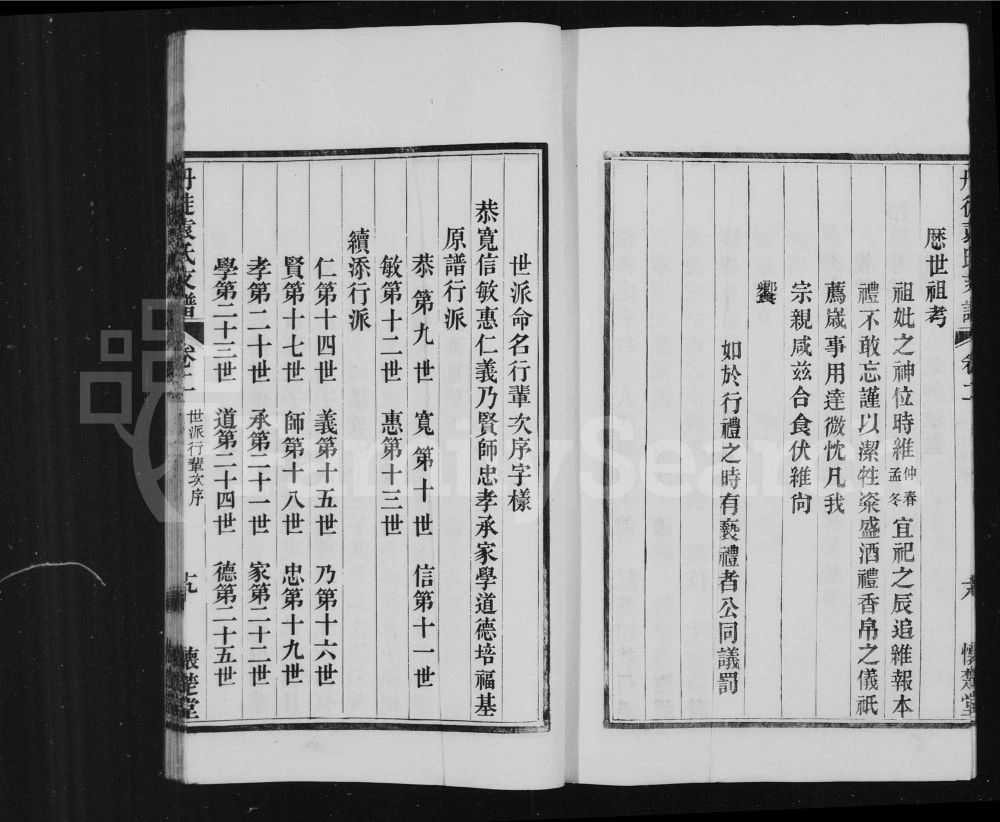 丹徒袁氏支譜 卷一 大 懷楚堂
歷世祖考
祖妣之神位時維仲春孟冬宜祀之辰追維報本
禮不敢忘謹以潔牲粢盛酒禮香帛之儀祇
薦歲事用達微忱凡我
宗親咸茲合食伏維尙
饗
如於行禮之時有褻禮者公同議罰
世派命名行輩次序字樣
恭寬信敏惠仁義乃賢師忠孝承家學道德培福基
原譜行派
恭第九世 寬第十世 信第十一世
敏第十二世 惠第十三世
續添行派
仁第十四世 義第十五世 乃第十六世
賢第十七世 師第十八世 忠第十九世
孝第二十世 承第二十一世 家第二十二世
學第二十三世 道第二十四世 德第二十五世
丹徒袁氏支譜 卷一 世派行輩次序 十九 懷楚堂
FamilySearch